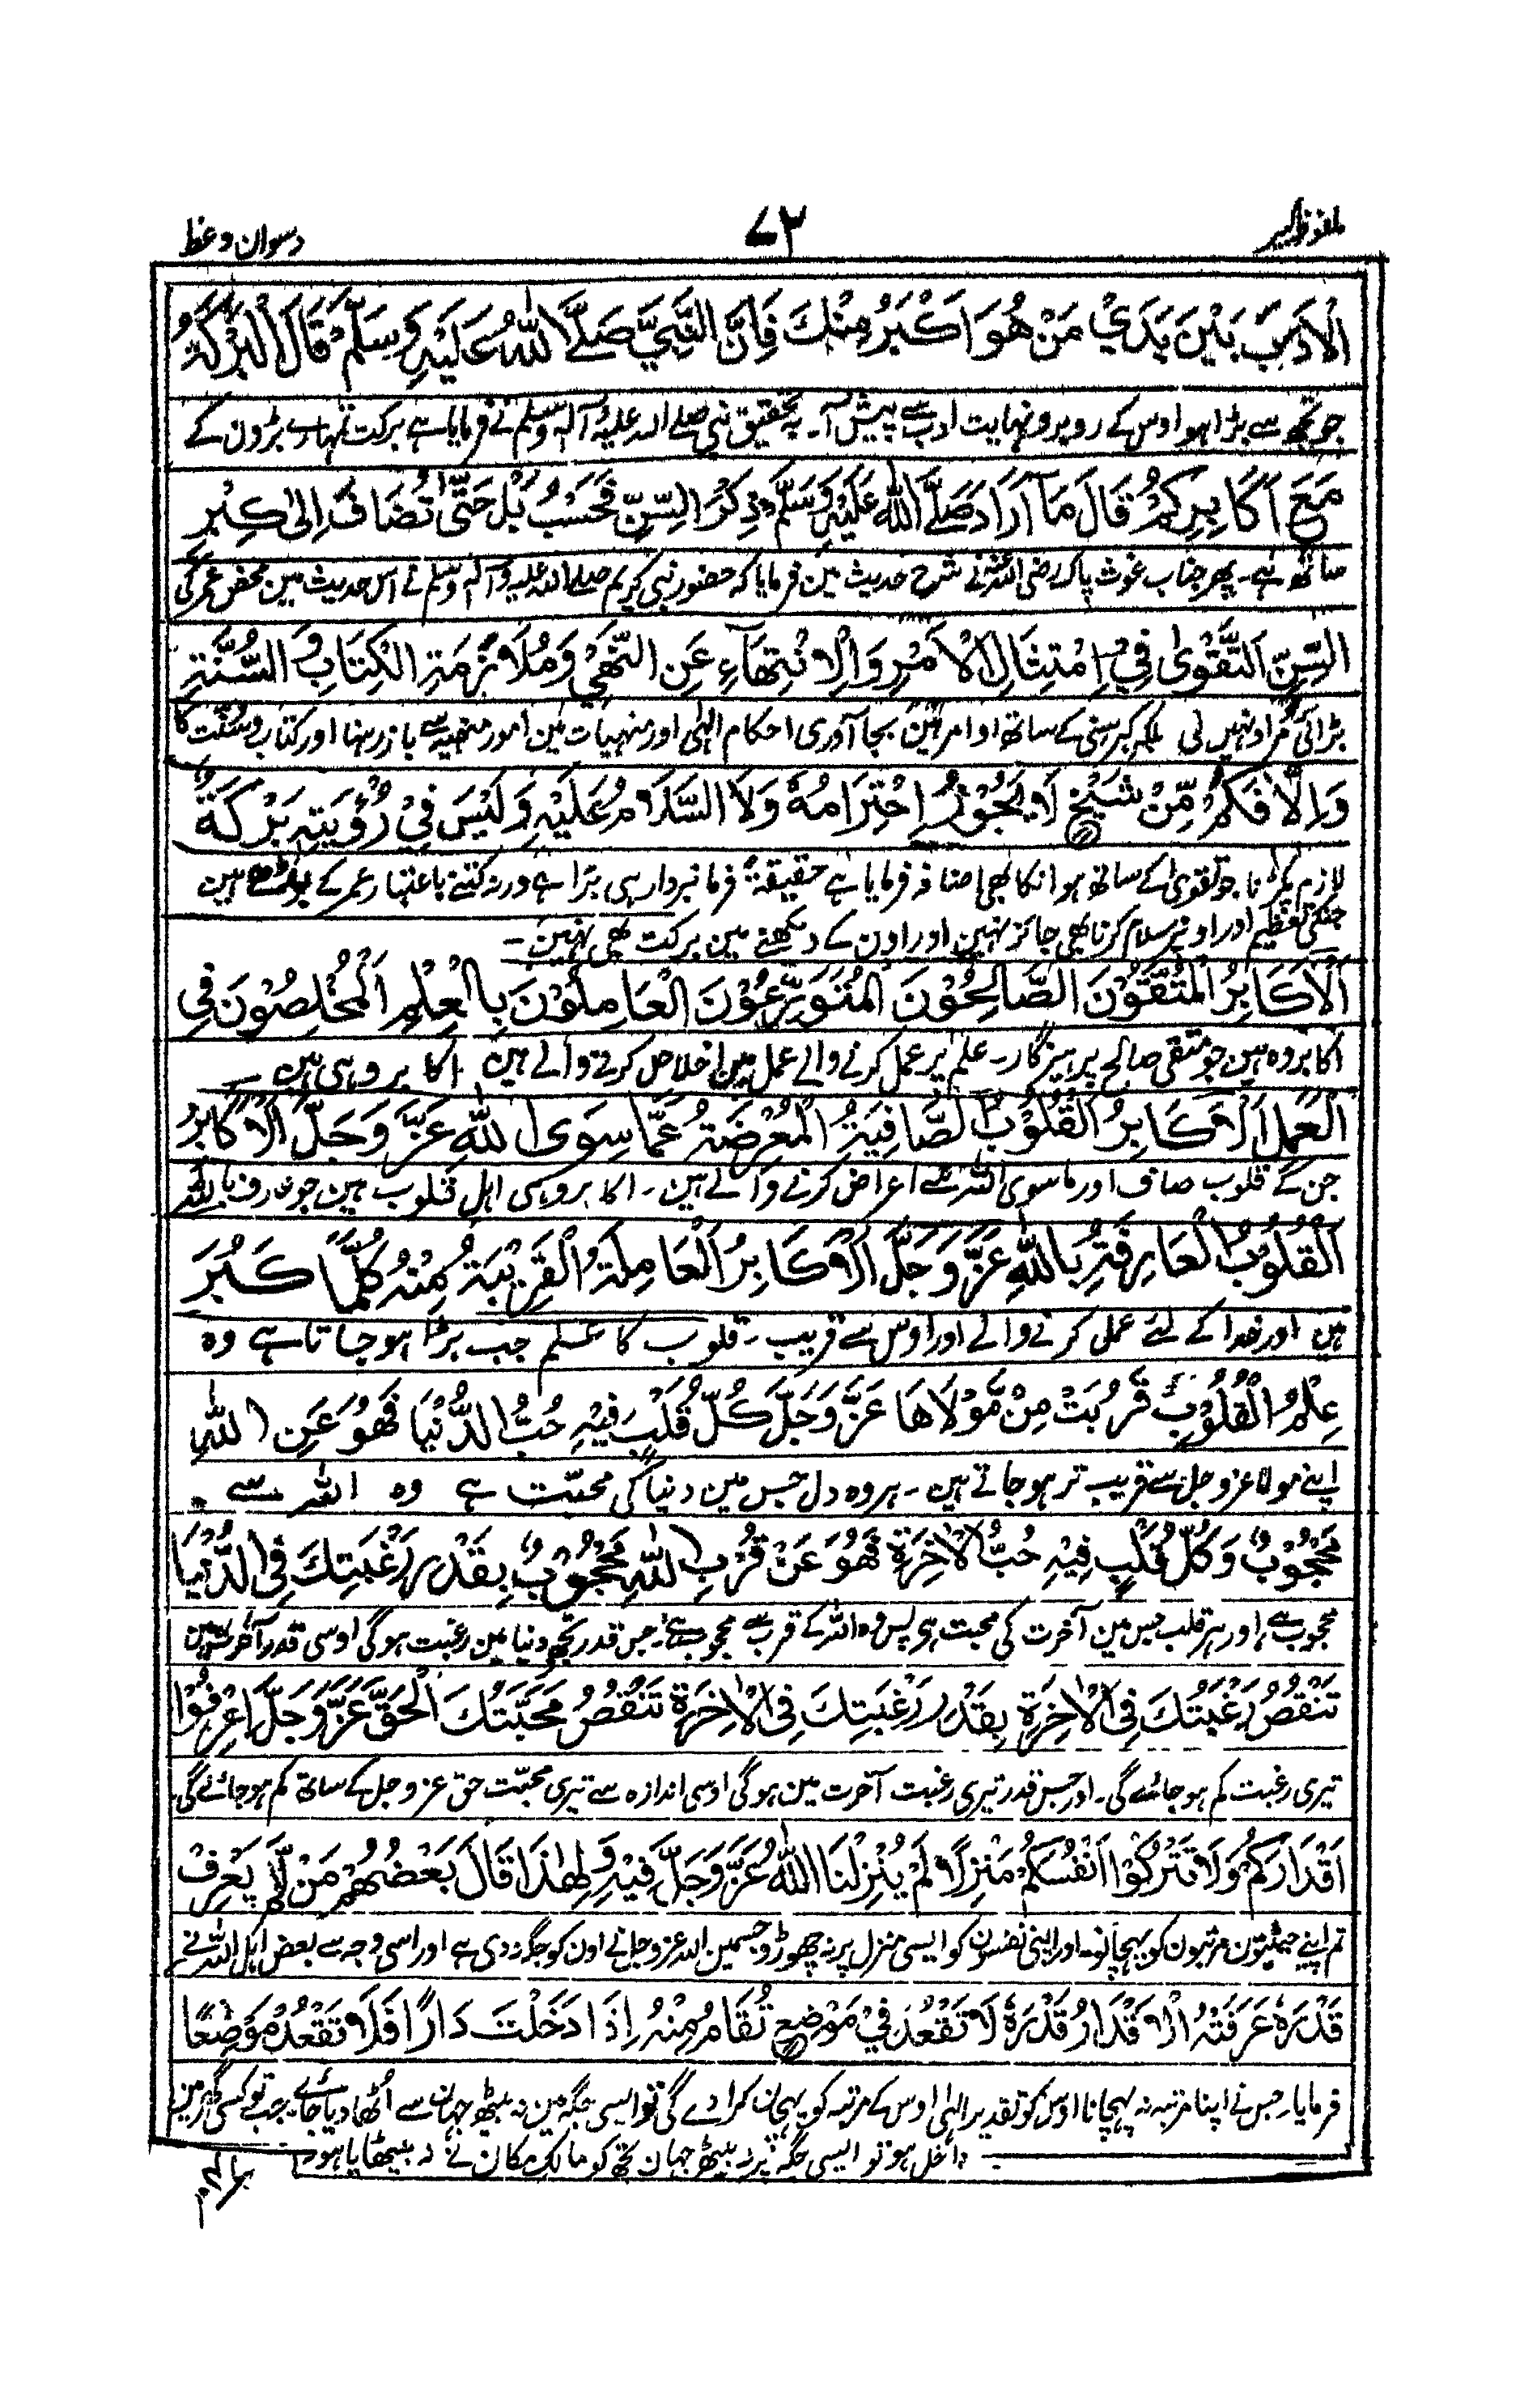 ملفوظ کبیر
۷۳
دسوان وعظ
الْاَدَبِ بَيْنَ يَدَيْ مَنْ هُوَ اَكْبَرُ مِنْكَ فَاِنَّ النَّبِيَّ صَلَّے اللّٰهُ عَلَيْهِ وَسَلَّمَ قَالَ اَلْبَرْكَةُ
جو تجھ سے بڑا ہو اوس کے روبرو نہایت ادب سے پیش آ۔ بہ تحقیق نبی صلے اللہ علیہ وآلہ وسلم نے فرمایا ہے برکت تمہارے بڑون کے
مَعَ اَكَابِرِكُمْ قَالَ مَا اَرَادَ صَلَّے اللّٰهُ عَلَيْهِ وَسَلَّمَ ذِكْرَ السِّنِّ فَحَسْبُ بَلْ حَتّٰى تُضَافَ اِلىٰ كِبْرِ
ساتھ ہے۔ پھر جناب غوث پاک رضی اللہ عنہ نے شرح حدیث مین فرمایا کہ حضور نبی کریم صلے اللہ علیہ وآلہ وسلم نے اس حدیث مین محض عمر کی
السِّنِّ اَلتَّقْوٰى فِيْ اِمْتِثَالِ الْاَمْرِ وَالْاِنْتِهَآءِ عَنِ النَّهْيِ وَمُلَازَمَةِ الْكِتَابِ وَالسُّنَّةِ
بڑائی مراد نہین لی بلکہ کبر سنی کے ساتھ اوامر مین بجا آوری احکام الٰہی اور منہیات مین امور منہیہ سے باز رہنا اور کتاب وسنّت کا
وَاِلَّا فَكَمْ مِّنْ شَيْخٍ لَا يَجُوْزُ اِحْتِرَامُهٗ وَلَا السَّلَامُ عَلَيْهِ وَلَيْسَ فِيْ رُؤْيَتِهٖ بَرْكَةٌ
لازم پکڑنا جو تقویٰ کے ساتھ ہو انکا بھی اضافہ فرمایا ہے حقیقۃً فرمانبردار ہی بڑا ہے ورنہ کتنے باعتبار عمر کے بوڑھے ہین
جنکی تعظیم اور اونپر سلام کرنا بھی جائز نہین اور اون کے دیکھنے مین برکت بھی نہین۔
اَلْاَكَابِرُ الْمُتَّقُوْنَ الصَّالِحُوْنَ الْمُتَوَرِّعُوْنَ الْعَامِلُوْنَ بِالْعِلْمِ اَلْمُخْلِصُوْنَ فِي
اکابر وہ ہین جو متقی صالح پرہیزگار۔ علم پر عمل کرنے والے عمل مین اخلاص کرنے والے ہین اکابر وہی ہین
الْعَمَلِ اَلْاَكَابِرُ الْقُلُوْبُ الصَّافِيَةُ الْمُعْرِضَةُ عَمَّا سِوَى اللّٰهِ عَزَّ وَجَلَّ اَلْاَكَابِرُ
جن کے قلوب صاف اور ماسوی اللہ سے اعراض کرنے والے ہین۔ اکابر وہی اہل قلوب ہین جو عارف باللہ
اَلْقُلُوْبُ الْعَارِفَةُ بِاللّٰهِ عَزَّ وَجَلَّ اَلْاَكَابِرُ الْعَامِلَةُ الْقَرِيْبَةُ مِنْهُ كُلَّمَا كَبُرَ
ہین اور خدا کے لئے عمل کرنے والے اور اوس سے قریب۔ قلوب کا علم جب بڑا ہو جاتا ہے وہ
عِلْمُ الْقُلُوْبِ قَرُبَتْ مِنْ مَّوْلَاهَا عَزَّ وَجَلَّ كُلُّ قَلْبٍ فِيْهِ حُبُّ الدُّنْيَا فَهُوَ عَنِ اللّٰهِ
اپنے مولا عزوجل سے قریب تر ہو جاتے ہین۔ ہر وہ دل جس مین دنیا کی محبّت ہے وہ اللہ سے
مَحْجُوْبٌ وَكُلُّ قَلْبٍ فِيْهِ حُبُّ الْاٰخِرَةِ فَهُوَ عَنْ قُرْبِ اللّٰهِ مَحْجُوْبٌ بِقَدْرِ رَغْبَتِكَ فِي الدُّنْيَا
محجوب ہے اور ہر قلب جس مین آخرت کی محبت ہو پس وہ اللہ کے قرب سے محجوب ہے۔ جس قدر تجھے دنیا مین رغبت ہوگی اوسی قدر آخرت مین
تَنْقُصُ رَغْبَتُكَ فِي الْاٰخِرَةِ بِقَدْرِ رَغْبَتِكَ فِي الْاٰخِرَةِ تَنْقُصُ مَحَبَّتُكَ الْحَقَّ عَزَّ وَجَلَّ اِعْرِفُوْا
تیری رغبت کم ہو جائے گی۔ اور جس قدر تیری رغبت آخرت مین ہوگی اوسی اندازہ سے تیری محبّت حق عز وجل کے ساتھ کم ہو جائے گی
اَقْدَارَكُمْ وَلَا تَتْرُكُوْا اَنْفُسَكُمْ مَنْزِلًا لَمْ يُنْزِلْنَا اللّٰهُ عَزَّ وَجَلَّ فِيْهِ وَلِهٰذَا قَالَ بَعْضُهُمْ مَنْ لَّمْ يَعْرِفْ
تم اپنے حیثیتون مرتبون کو پہچانو۔ اور اپنی نفسون کو ایسی منزل پر نہ چھوڑو جسمین اللہ عز وجل نے اون کو جگہ نہ دی ہے اور اسی وجہ سے بعض اہل اللہ نے
قَدْرَهٗ عَرَفَتْهُ الْاَقْدَارُ قَدْرَهٗ لَا تَقْعُدْ فِيْ مَوْضِعٍ تُقَامُ مِنْهُ اِذَا دَخَلْتَ دَارًا فَلَا تَقْعُدْ مَوْضِعًا
فرمایا۔ جس نے اپنا مرتبہ نہ پہچانا اوس کو تقدیر الٰہی اوس کے مرتبہ کو پہچان کرا دے گی تو ایسی جگہ مین نہ بیٹھ جہان سے اُٹھا دیا جائے۔ جب تو کسی گھر مین
داخل ہو تو ایسی جگہ پر نہ بیٹھ جہان تجھ کو مالک مکان نے نہ بیٹھایا ہو۔